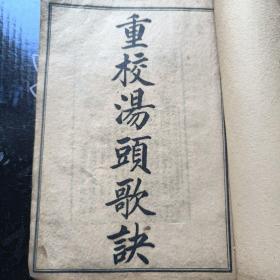 重校湯頭歌訣